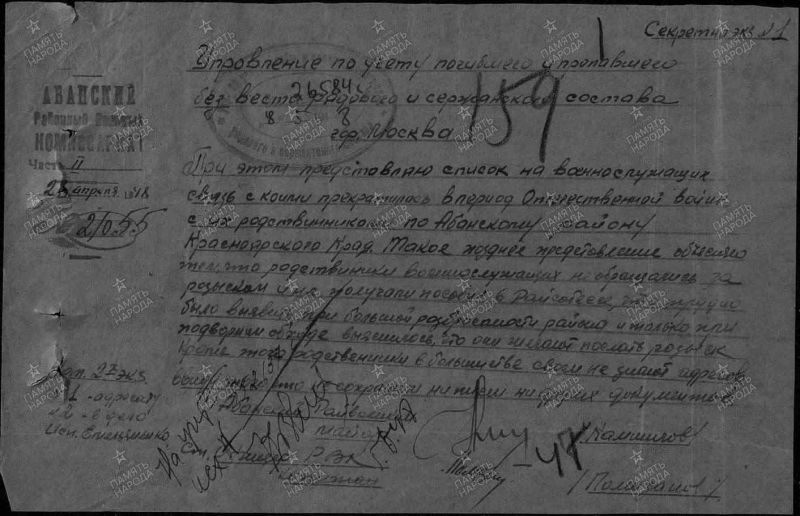 Секретно экз N 1
Управление по учету погибшего и пропавшего
без вести рядового и сержанского состава
гор. Москва
159
265844
АБАНСКИЙ
Районный Военный
КОМИССАРИАТ
Часть II
28 апреля 1948
2/0355
При этом представляю список на военнослужащих
связь с коими прекратилась в период Отечественной войны
с их родственниками по Абанскому району
Красноярского Края. Такое позднее представление объясняю
тем, что родственники военнослужащих не обращались за
розыском и не получали пособия в Райсобесе, что трудно
было выявить при большой разбросанности района и только при
подворном обходе выяснилось, что они желают послать розыск
Кроме того родственники в большинстве своем не знают адресов
ввиду того что не сохранили ни писем ни других документов
Абанский Райвоенком
майор
/Камшилов/
Отп. 2 экз.
1 - адресату
2 - в дело
Исп. Емельяненко
РВК
капитан
47
ПАМЯТЬ НАРОДА